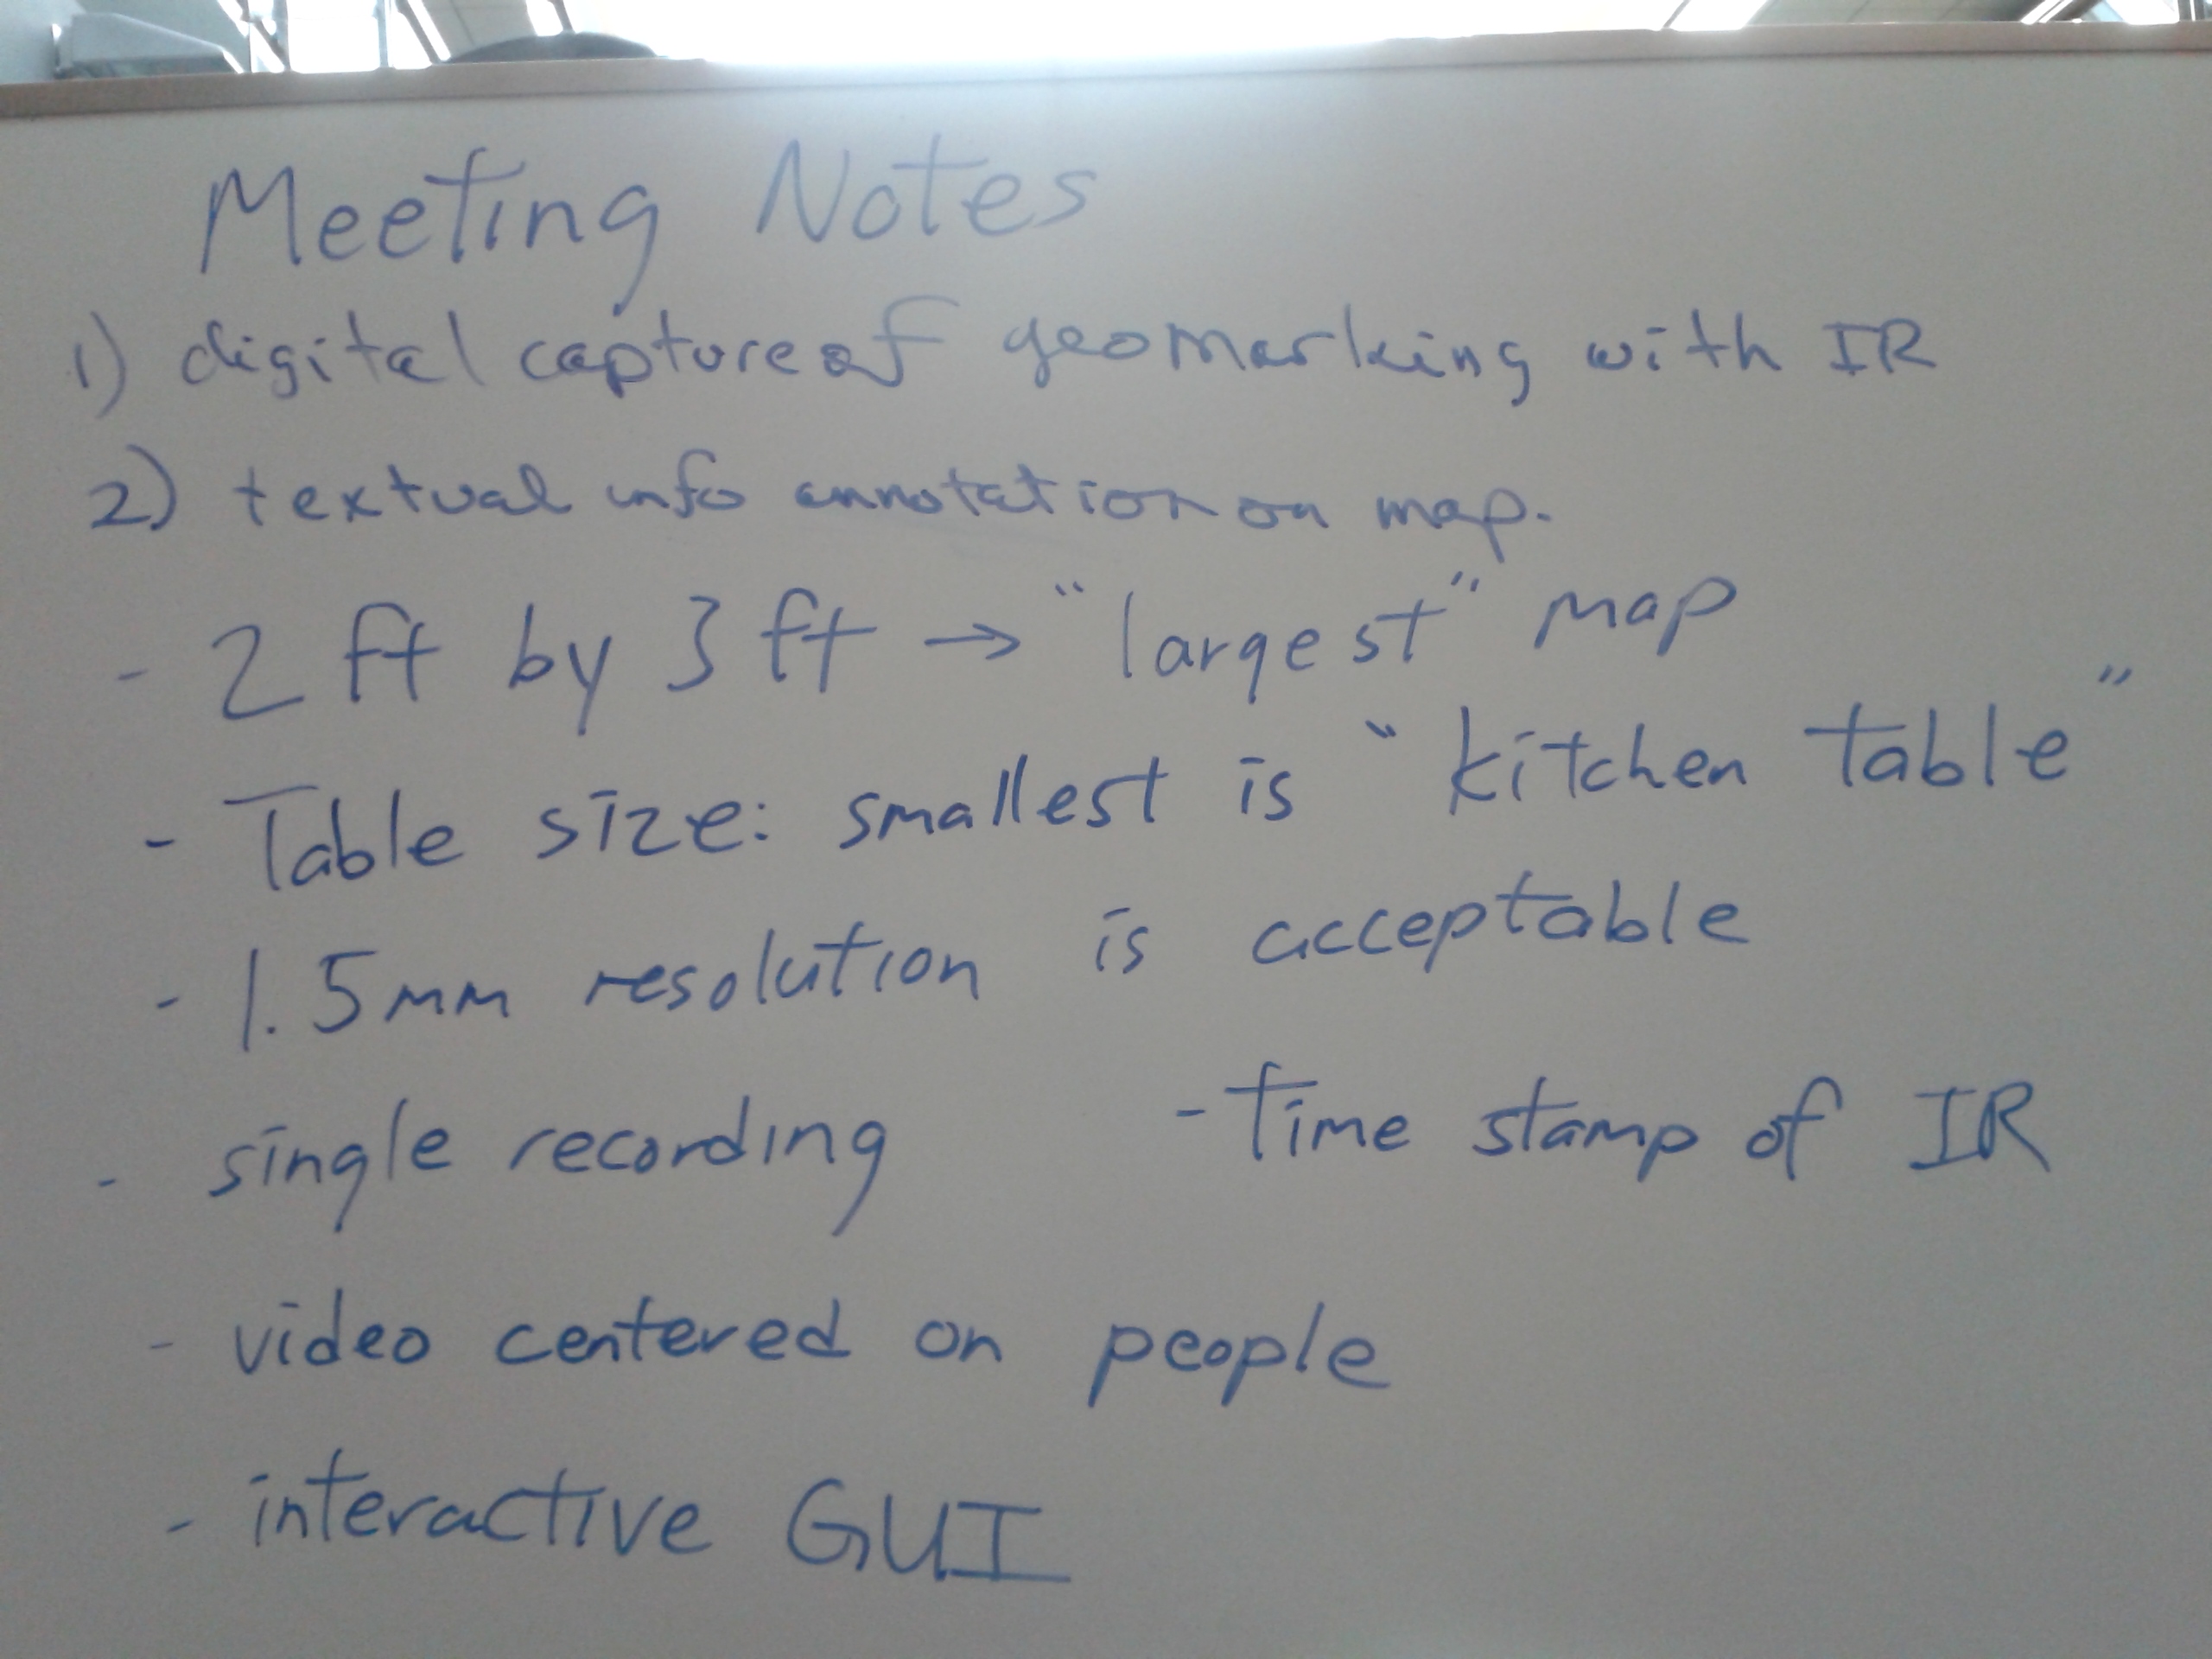 Meeting Notes
1) digital capture of geomarking with IR
2) textual info annotation on map.
- 2 ft by 3 ft → "largest" map
- Table size: smallest is "kitchen table"
- 1.5mm resolution is acceptable
- single recording - Time stamp of IR
- video centered on people
- interactive GUI